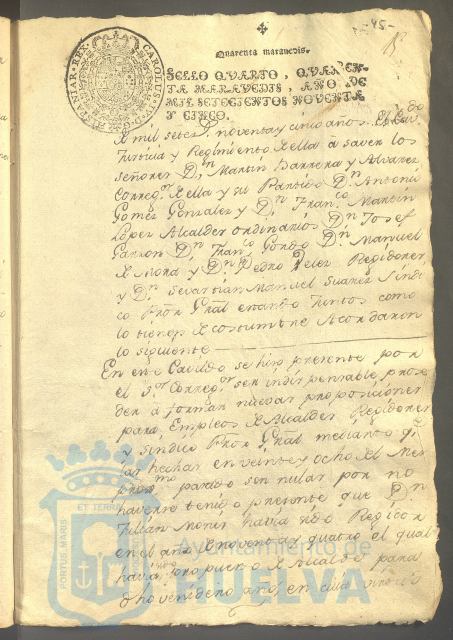 -45-
Quarenta maravedis.
SELLO QVARTO, QVAREN-
TA MARAVEDIS, AÑO DE
MIL SETECIENTOS NOVENTA
Y CINCO.
CAROLUS IV D. G. HISPANIAR. REX
mil setez.s noventa y cinco años. El Cav.do
Justicia y Regimiento de ella à saver los
señores D.n Martin Barrera y Alvarez
Correg.or de ella y su Partido D.n Antonio
Gomez Gonzalez y D.n Fran.co Martin
Lopez Alcaldes ordinarios D.n Josef
Garron D.n Fran.co Gordo D.n Manuel
de Mora y D.n Pedro Velez Regidores
y D.n Sevastian Manuel Suarez Sindi
co Pror Gral estando Juntos como
lo tienen de costumbre Acordaron
lo siguiente
En este Cavildo se hizo presente por
el S.or Correg.or ser indispensable proce
der à formar nuevas proposiciones
para Empleos de Alcaldes Regidores
y sindico Pror Gral mediante q.e
las hechas en veinte y ocho del Mes
prox.mo pasado sin nulas por no
haverse tenido presente que D.n
Julián Mones havia sido Regidor
en el año de noventa y quatro el qual
havia propuesto de Alcalde para
el año venidero
PORTUS MARIS
ET TERRÆ
Ayuntamiento de
HUELVA